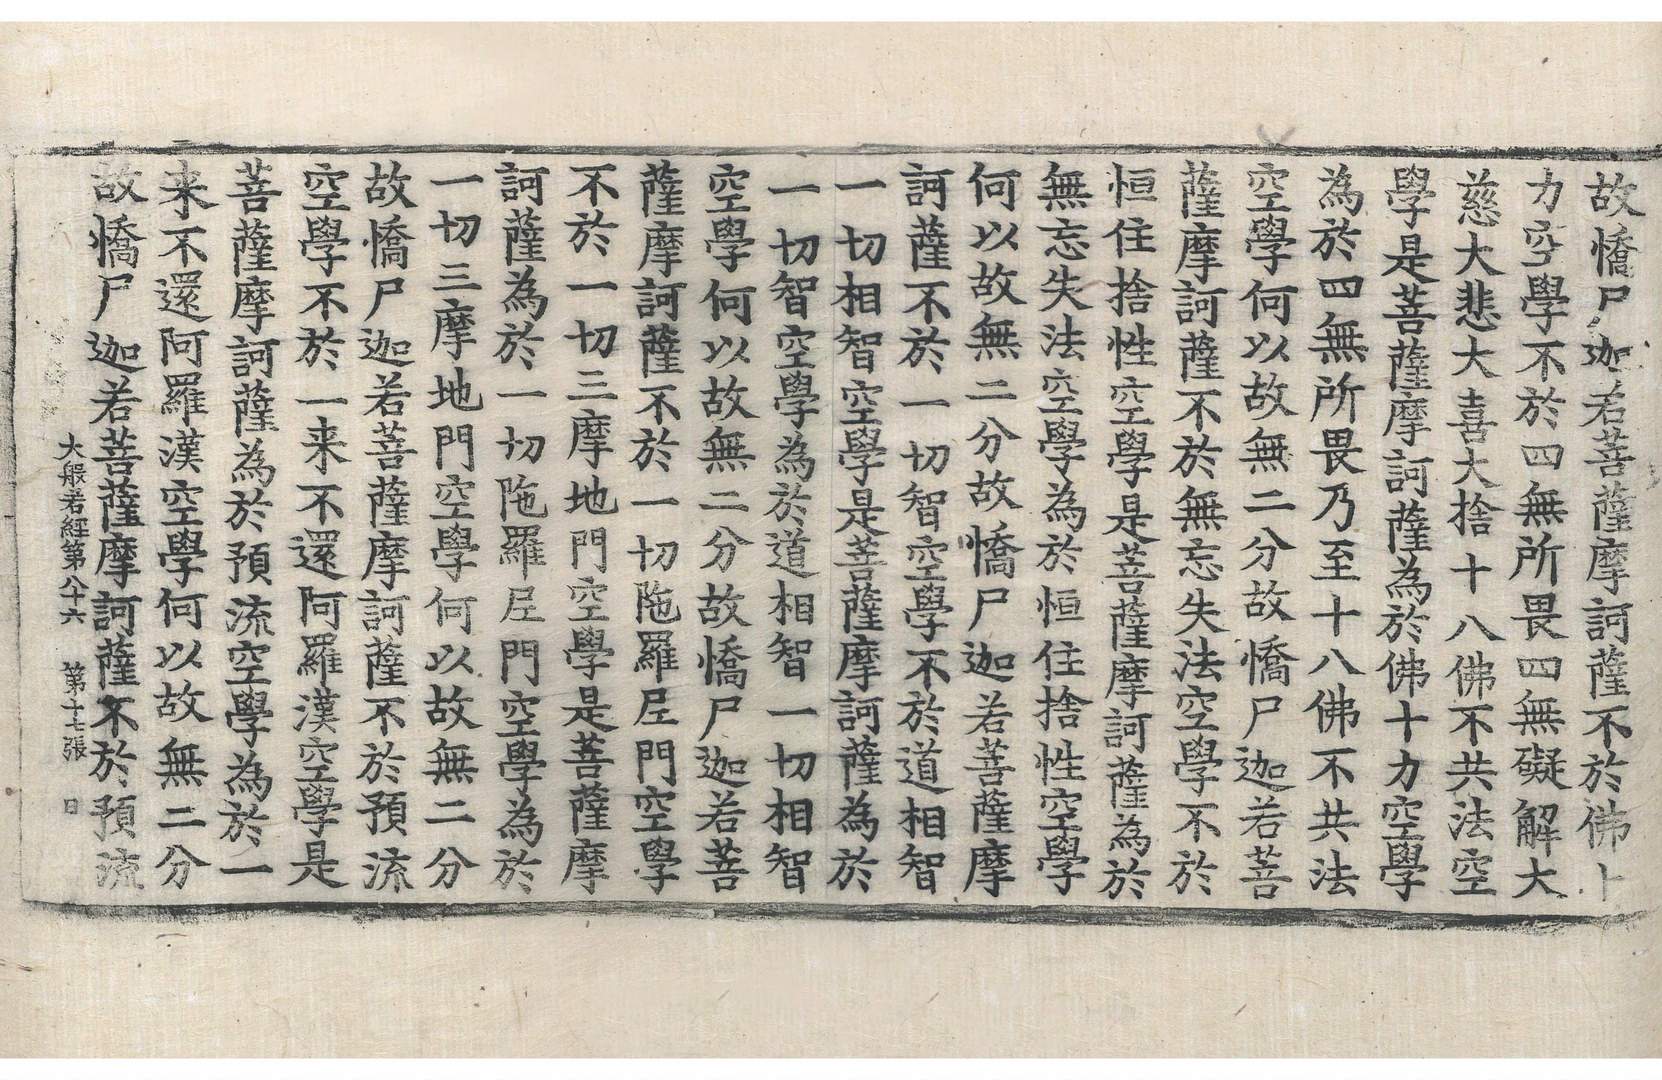 故憍尸迦若菩薩摩訶薩不於佛十
力空學不於四無所畏四無礙解大
慈大悲大喜大捨十八佛不共法空
學是菩薩摩訶薩為於佛十力空學
為於四無所畏乃至十八佛不共法
空學何以故無二分故憍尸迦若菩
薩摩訶薩不於無忘失法空學不於
恒住捨性空學是菩薩摩訶薩為於
無忘失法空學為於恒住捨性空學
何以故無二分故憍尸迦若菩薩摩
訶薩不於一切智空學不於道相智
一切相智空學是菩薩摩訶薩為於
一切智空學為於道相智一切相智
空學何以故無二分故憍尸迦若菩
薩摩訶薩不於一切陁羅尼門空學
不於一切三摩地門空學是菩薩摩
訶薩為於一切陁羅尼門空學為於
一切三摩地門空學何以故無二分
故憍尸迦若菩薩摩訶薩不於預流
空學不於一来不還阿羅漢空學是
菩薩摩訶薩為於預流空學為於一
来不還阿羅漢空學何以故無二分
故憍尸迦若菩薩摩訶薩不於預流
大般若經第八十六 第十七張 日